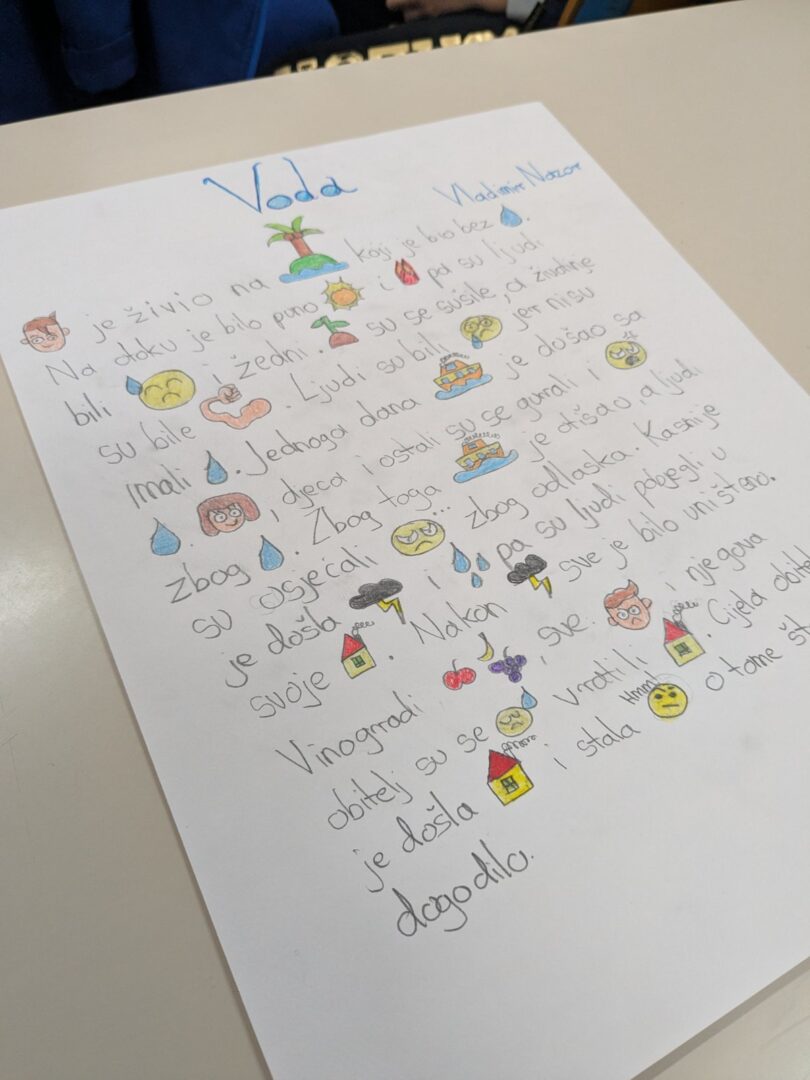 Voda
Vladimir Nazor
je živio na koji je bio bez .
Na otoku je bilo puno i pa su ljudi
bili i žedni. su se sušile, a životinje
su bile . Ljudi su bili jer nisu
imali . Jednoga dana je došao sa
. , djeca i ostali su se gurali i
zbog . Zbog toga je otišao, a ljudi
su osjećali ... zbog odlaska. Kasnije
je došla i pa su ljudi pobjegli u
svoje . Nakon sve je bilo uništeno.
Vinogradi , sve. i njegova
obitelj su se vratili . Cijela
je došla i stala Hmm o tome
dogodilo.